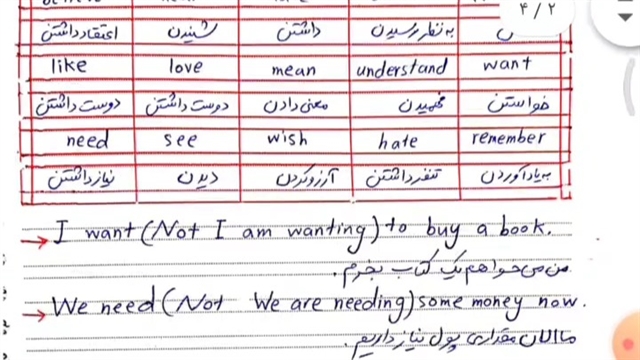 ۴/۲
اعتقاد داشتن شنیدن داشتن به نظر رسیدن
like love mean understand want
دوست داشتن دوست داشتن معنی دادن فهمیدن خواستن
need see wish hate remember
نیاز داشتن دیدن آرزو کردن تنفر داشتن به یاد آوردن
→ I want (Not I am wanting) to buy a book.
من می خواهم یک کتاب بخرم.
→ We need (Not We are needing) some money now.
ما الان مقداری پول نیاز داریم.